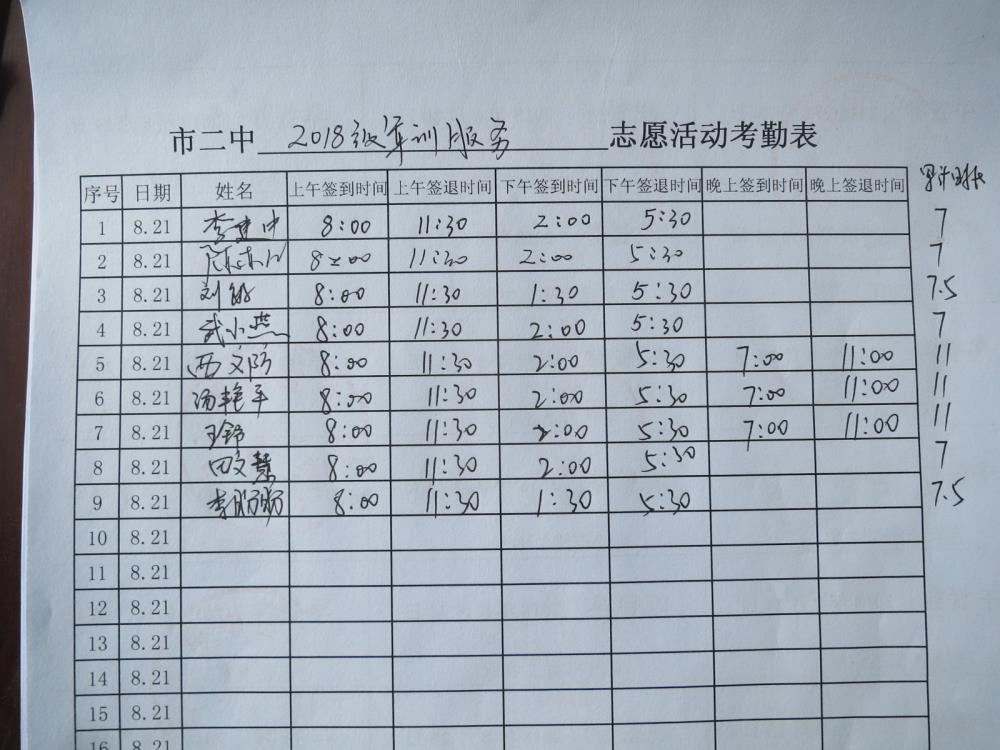 市二中 2018级军训服务 志愿活动考勤表
序号 日期 姓名 上午签到时间 上午签退时间 下午签到时间 下午签退时间 晚上签到时间 晚上签退时间 累计时长
1 8.21 李建中 8:00 11:30 2:00 5:30 7
2 8.21 8:00 11:30 2:00 5:30 7
3 8.21 刘敏 8:00 11:30 1:30 5:30 7.5
4 8.21 武小燕 8:00 11:30 2:00 5:30 7
5 8.21 文防 8:00 11:30 2:00 5:30 7:00 11:00 11
6 8.21 汤艳平 8:00 11:30 2:00 5:30 7:00 11:00 11
7 8.21 王 8:00 11:30 2:00 5:30 7:00 11:00 11
8 8.21 田文慧 8:00 11:30 2:00 5:30 7
9 8.21 李 8:00 11:30 1:30 5:30 7.5
10 8.21
11 8.21
12 8.21
13 8.21
14 8.21
15 8.21
16 8.21